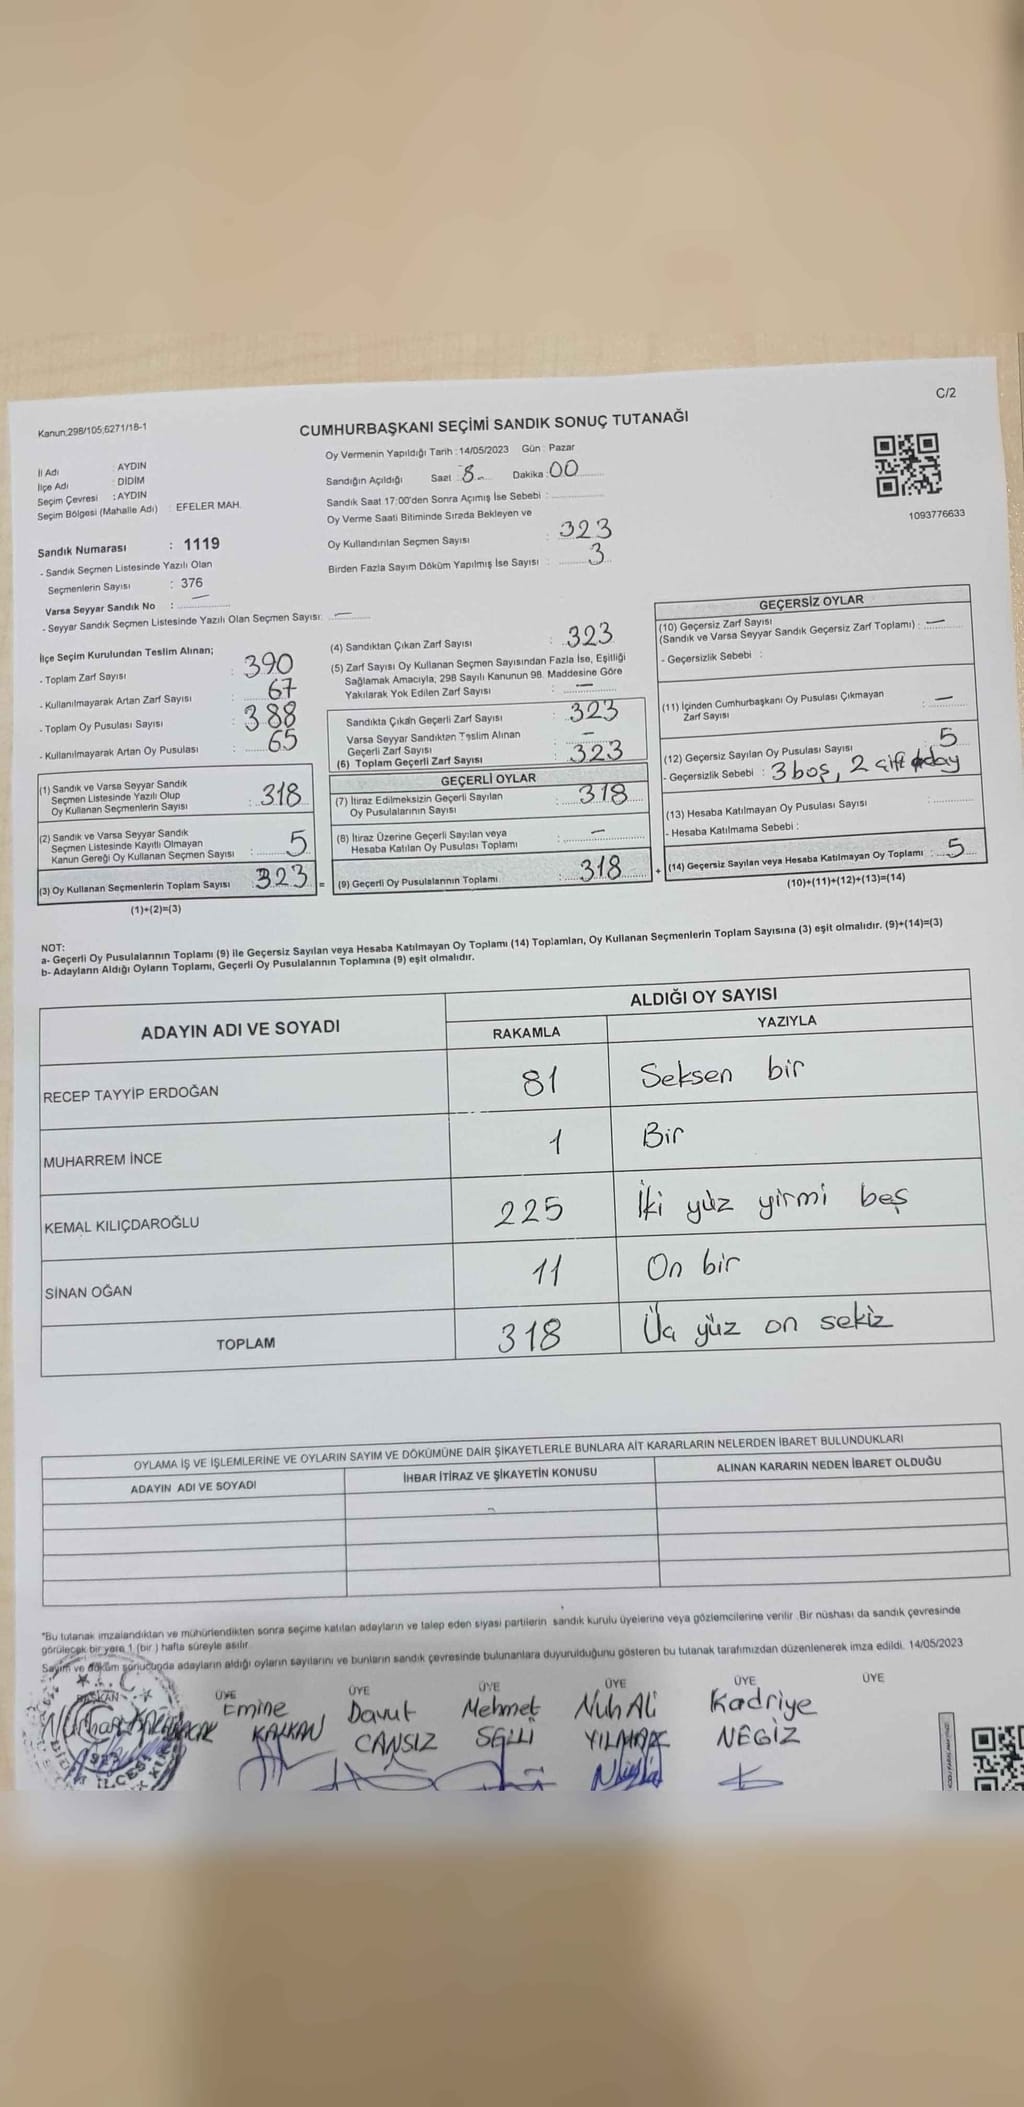 C/2
Kanun:298/105,6271/18-1
CUMHURBAŞKANI SEÇİMİ SANDIK SONUÇ TUTANAĞI
İl Adı : AYDIN
İlçe Adı : DİDİM
Seçim Çevresi : AYDIN
Seçim Bölgesi (Mahalle Adı) : EFELER MAH.
Oy Vermenin Yapıldığı Tarih : 14/05/2023 Gün : Pazar
Sandığın Açıldığı Saat : 8 Dakika : 00
Sandık Saat 17:00'den Sonra Açımış İse Sebebi :
Oy Verme Saati Bitiminde Sırada Bekleyen ve
Oy Kullandırılan Seçmen Sayısı : 323
Birden Fazla Sayım Döküm Yapılmış İse Sayısı : 3
1093776633
Sandık Numarası : 1119
- Sandık Seçmen Listesinde Yazılı Olan
Seçmenlerin Sayısı : 376
Varsa Seyyar Sandık No : —
- Seyyar Sandık Seçmen Listesinde Yazılı Olan Seçmen Sayısı: —
İlçe Seçim Kurulundan Teslim Alınan;
- Toplam Zarf Sayısı : 390
- Kullanılmayarak Artan Zarf Sayısı : 67
- Toplam Oy Pusulası Sayısı : 388
- Kullanılmayarak Artan Oy Pusulası : 65
(1) Sandık ve Varsa Seyyar Sandık
Seçmen Listesinde Yazılı Olup
Oy Kullanan Seçmenlerin Sayısı : 318
(2) Sandık ve Varsa Seyyar Sandık
Seçmen Listesinde Kayıtlı Olmayan
Kanun Gereği Oy Kullanan Seçmen Sayısı : 5
(3) Oy Kullanan Seçmenlerin Toplam Sayısı : 323 =
(1)+(2)=(3)
(4) Sandıktan Çıkan Zarf Sayısı : 323
(5) Zarf Sayısı Oy Kullanan Seçmen Sayısından Fazla İse, Eşitliği
Sağlamak Amacıyla, 298 Sayılı Kanunun 98. Maddesine Göre
Yakılarak Yok Edilen Zarf Sayısı : —
Sandıkta Çıkan Geçerli Zarf Sayısı : 323
Varsa Seyyar Sandıkten Teslim Alınan
Geçerli Zarf Sayısı : —
(6) Toplam Geçerli Zarf Sayısı : 323
GEÇERLİ OYLAR
(7) İtiraz Edilmeksizin Geçerli Sayılan
Oy Pusulalarının Sayısı : 318
(8) İtiraz Üzerine Geçerli Sayılan veya
Hesaba Katılan Oy Pusulası Toplamı : —
(9) Geçerli Oy Pusulalarının Toplamı : 318 +
GEÇERSİZ OYLAR
(10) Geçersiz Zarf Sayısı
(Sandık ve Varsa Seyyar Sandık Geçersiz Zarf Toplamı) : —
- Geçersizlik Sebebi :
(11) İçinden Cumhurbaşkanı Oy Pusulası Çıkmayan
Zarf Sayısı : —
(12) Geçersiz Sayılan Oy Pusulası Sayısı : 5
- Geçersizlik Sebebi : 3 boş, 2 çift
(13) Hesaba Katılmayan Oy Pusulası Sayısı :
- Hesaba Katılmama Sebebi :
(14) Geçersiz Sayılan veya Hesaba Katılmayan Oy Toplamı : 5
(10)+(11)+(12)+(13)=(14)
NOT:
a- Geçerli Oy Pusulalarının Toplamı (9) ile Geçersiz Sayılan veya Hesaba Katılmayan Oy Toplamı (14) Toplamları, Oy Kullanan Seçmenlerin Toplam Sayısına (3) eşit olmalıdır. (9)+(14)=(3)
b- Adayların Aldığı Oyların Toplamı, Geçerli Oy Pusulalarının Toplamına (9) eşit olmalıdır.
ADAYIN ADI VE SOYADI
ALDIĞI OY SAYISI
RAKAMLA YAZIYLA
RECEP TAYYİP ERDOĞAN 81 Seksen bir
MUHARREM İNCE 1 Bir
KEMAL KILIÇDAROĞLU 225 İki yüz yirmi beş
SİNAN OĞAN 11 On bir
TOPLAM 318 Üç yüz on sekiz
OYLAMA İŞ VE İŞLEMLERİNE VE OYLARIN SAYIM VE DÖKÜMÜNE DAİR ŞİKAYETLERLE BUNLARA AİT KARARLARIN NELERDEN İBARET BULUNDUKLARI
ADAYIN ADI VE SOYADI İHBAR İTİRAZ VE ŞİKAYETİN KONUSU ALINAN KARARIN NEDEN İBARET OLDUĞU
*Bu tutanak imzalandıktan ve mühürlendikten sonra seçime katılan adayların ve talep eden siyasi partilerin sandık kurulu üyelerine veya gözlemcilerine verilir. Bir nüshası da sandık çevresinde
görülecek bir yere 1 (bir) hafta süreyle asılır.
Sayım ve döküm sonucunda adayların aldığı oyların sayılarını ve bunların sandık çevresinde bulunanlara duyurulduğunu gösteren bu tutanak tarafımızdan düzenlenerek imza edildi. 14/05/2023
BAŞKAN ÜYE ÜYE ÜYE ÜYE ÜYE ÜYE
Emine Davut Mehmet Nuh Ali Kadriye
KALKAN CANSIZ YILMAZ NEGİZ
İLÇESİ